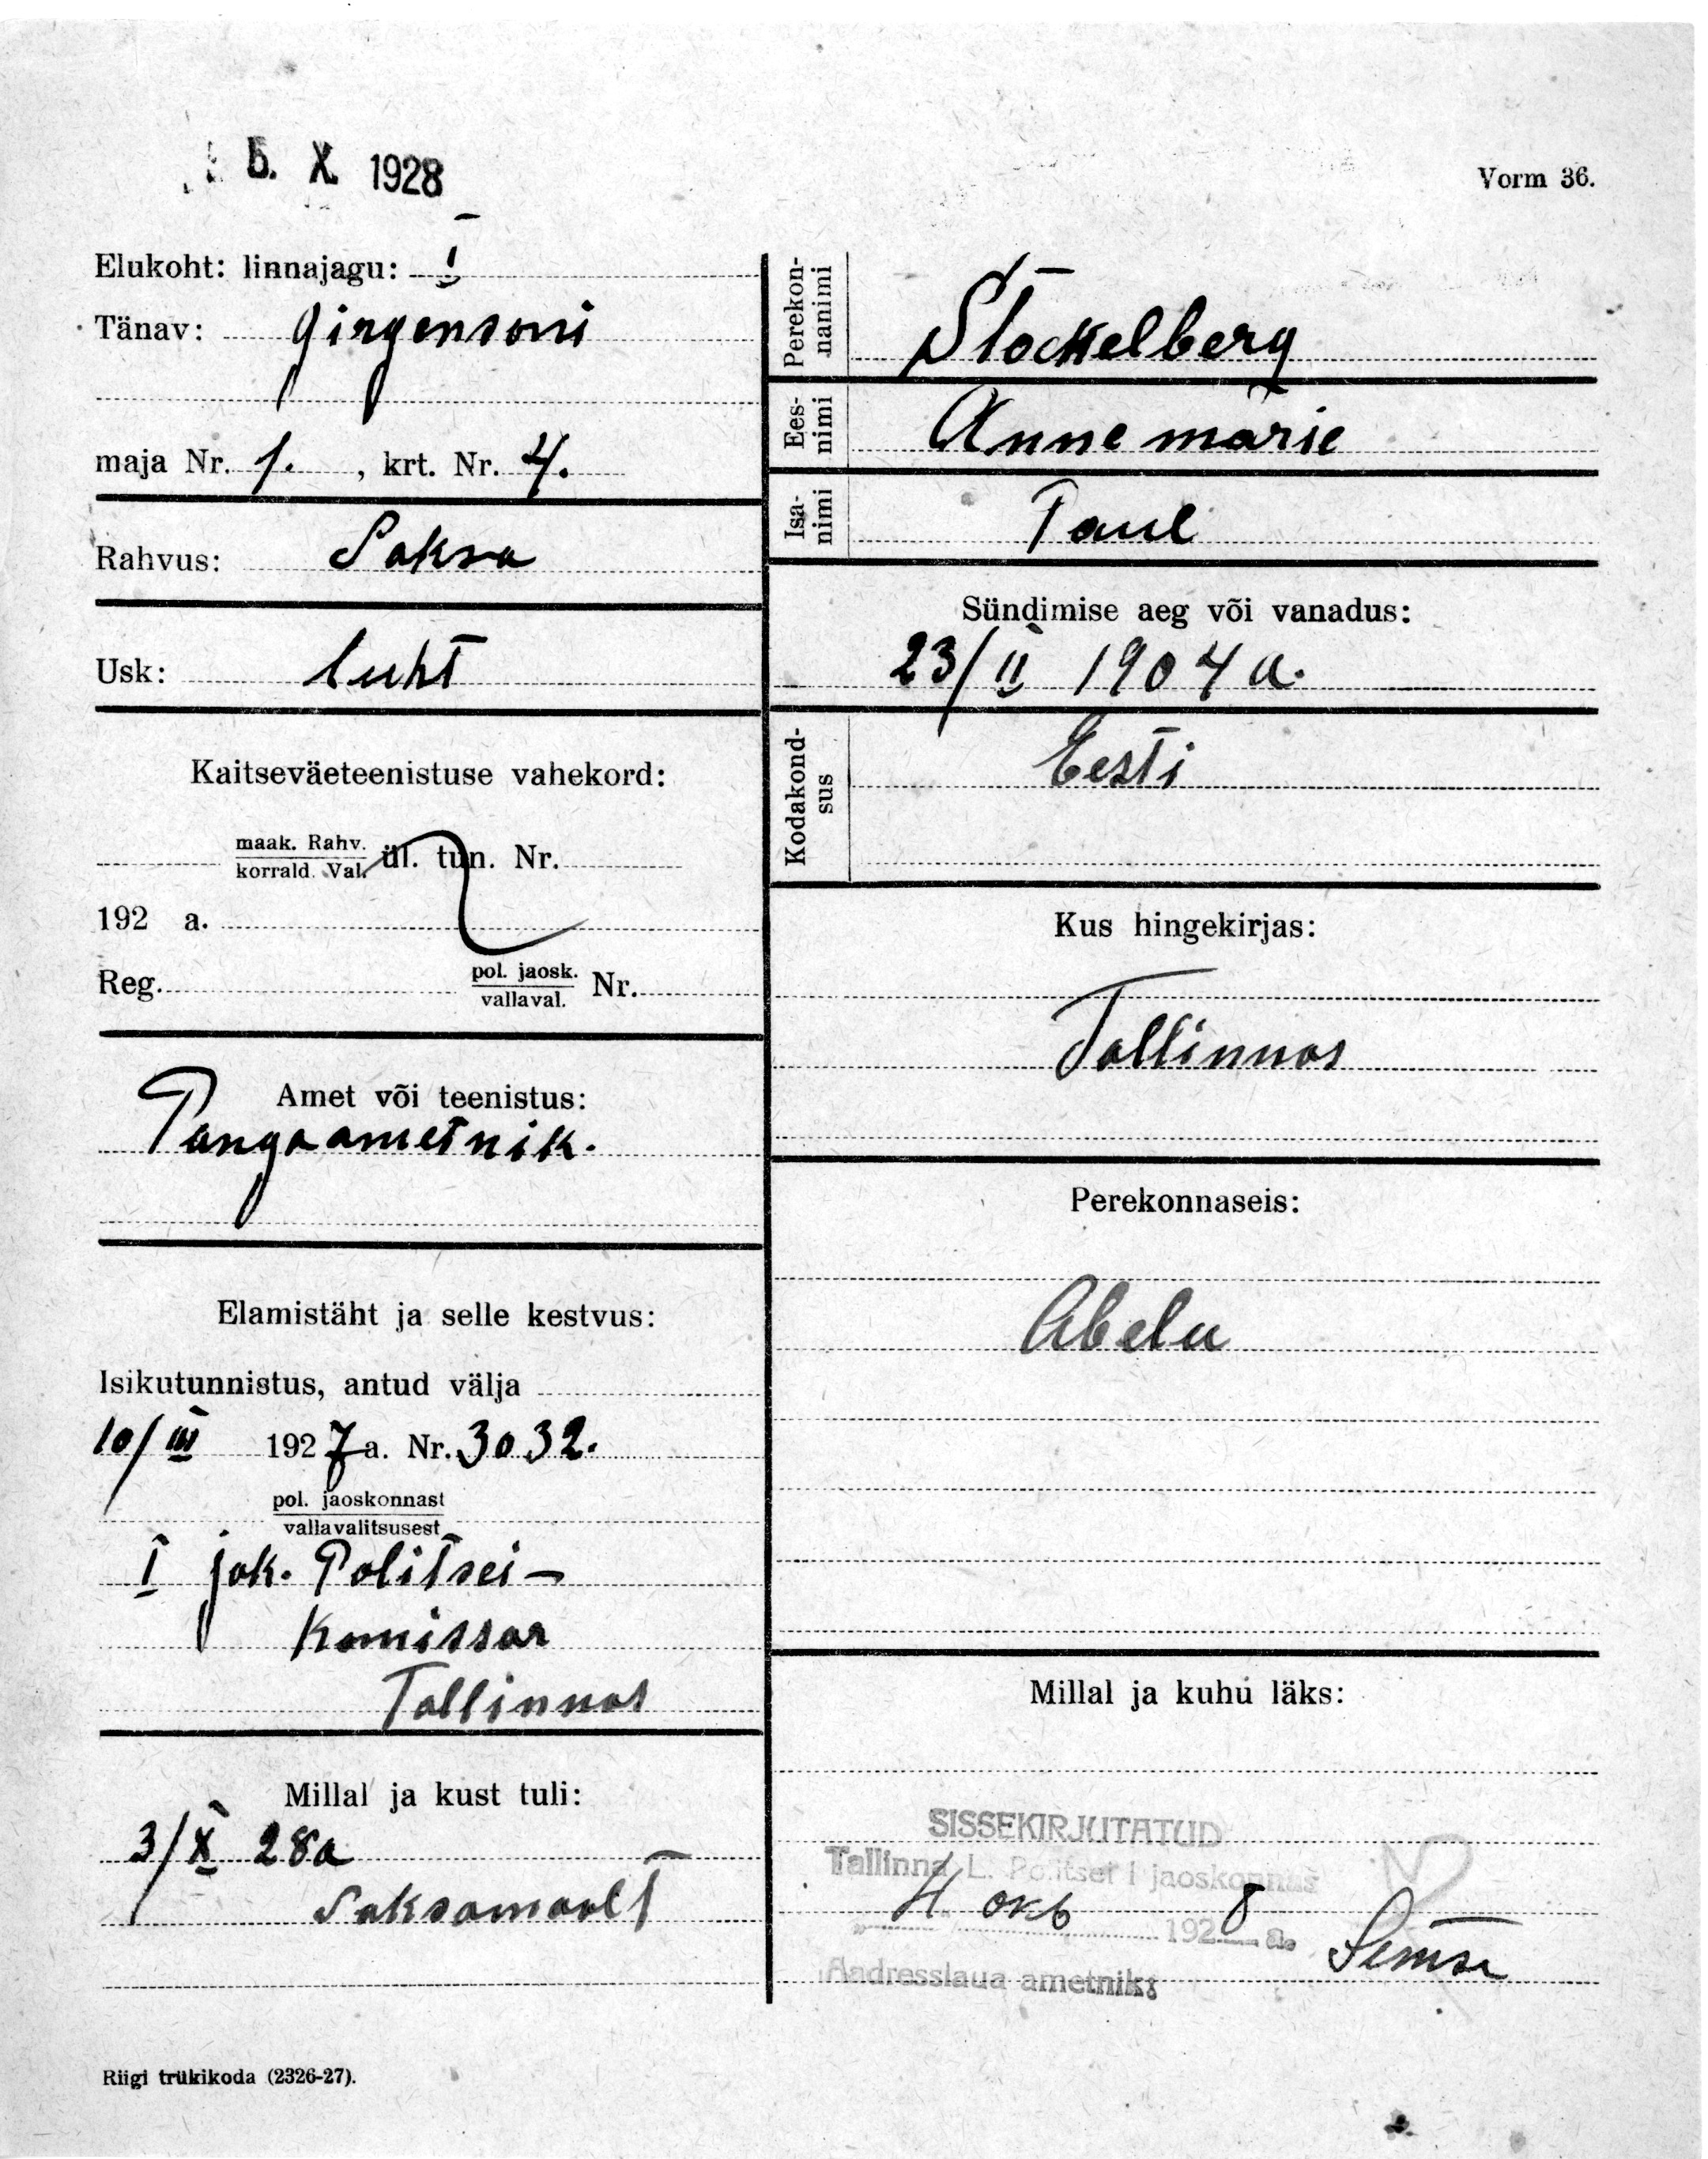 5. X. 1928
Vorm 36.
Elukoht: linnajagu: I
Tänav: Girgensoni
maja Nr. 1. , krt. Nr. 4.
Rahvus: Saksa
Usk: luht
Kaitseväeteenistuse vahekord:
maak. Rahv.
korrald. Val. ül. tun. Nr.
192 a.
Reg. pol. jaosk. Nr.
vallaval.
Amet või teenistus:
Pangaametnik.
Elamistäht ja selle kestvus:
Isikutunnistus, antud välja
10/III 1927 a. Nr. 3032.
pol. jaoskonnast
vallavalitsusest
I jak. Politsei-
Komissar
Tallinnas
Millal ja kust tuli:
3/X 28a
Saksamaalt
Perekon-
nanimi
Stackelberg
Ees-
nimi
Annemarie
Isa-
nimi
Paul
Sündimise aeg või vanadus:
23/II 1904 a.
Kodakond-
sus
Eesti
Kus hingekirjas:
Tallinnas
Perekonnaseis:
Abelu
Millal ja kuhu läks:
SISSEKIRJUTATUD
Tallinna L. Politsei I jaoskonnas
4 okt 1928 a.
Aadresslaua ametnik:
Riigi trükikoda (2326-27).